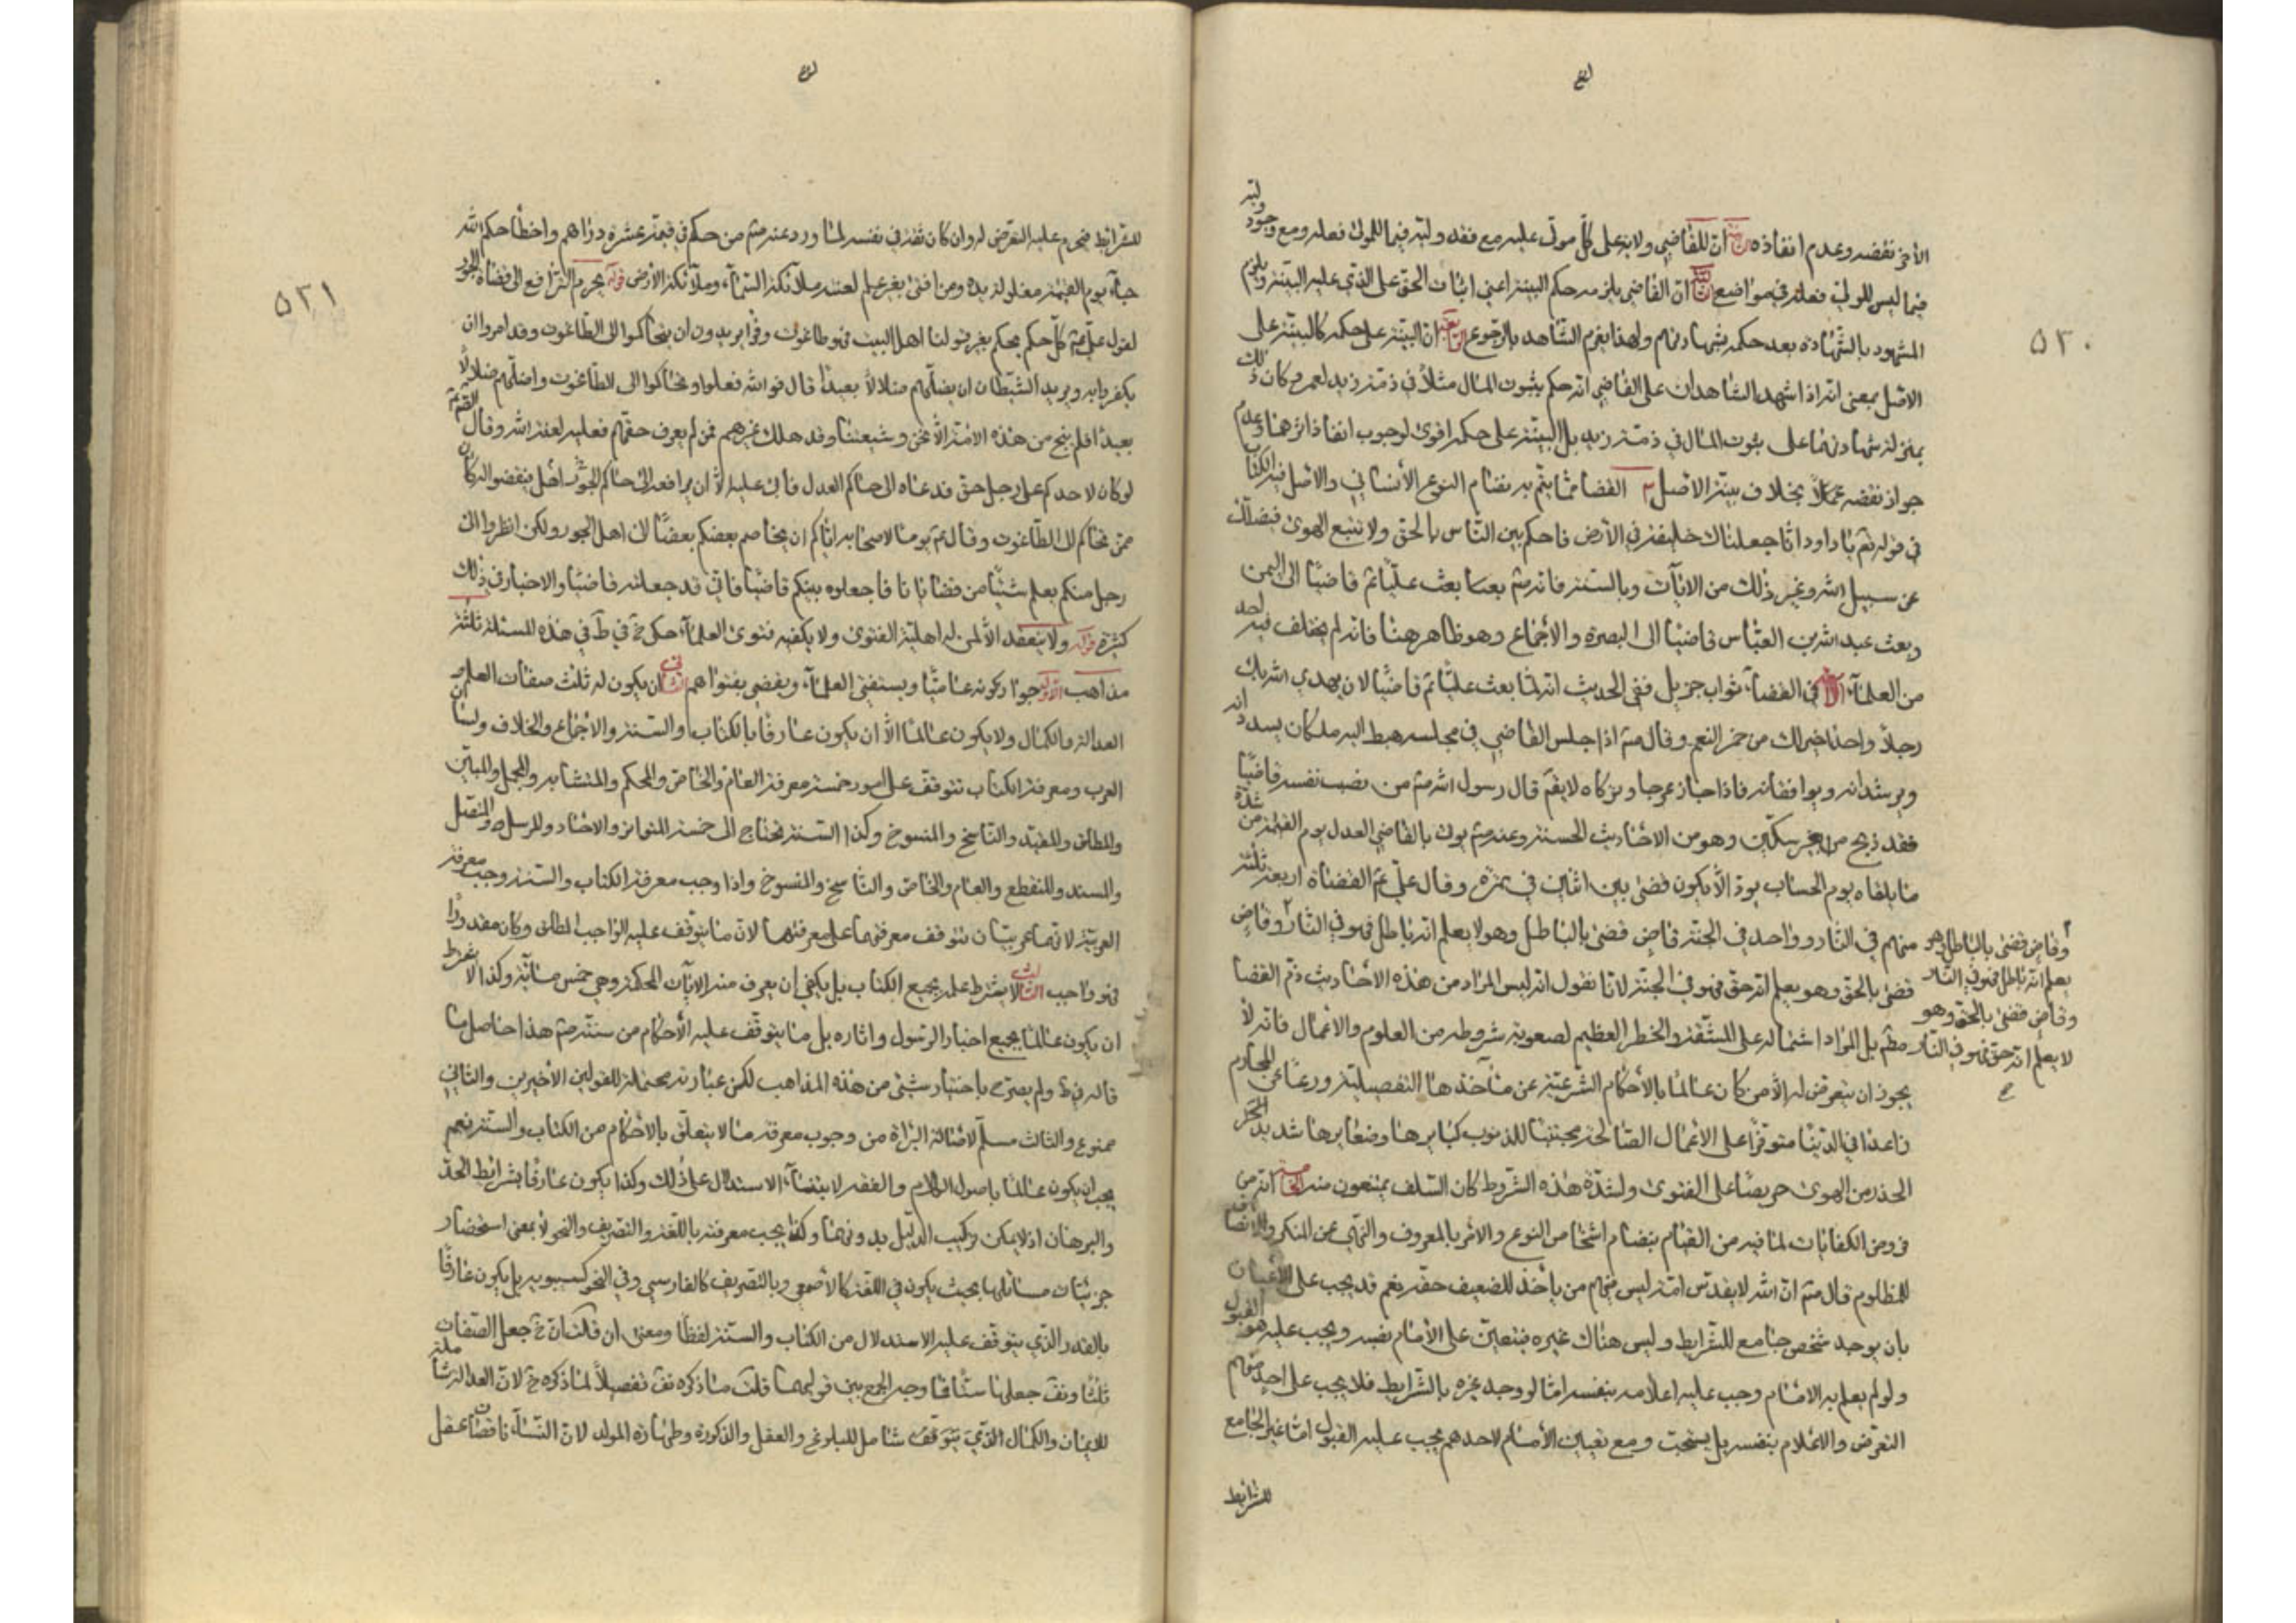 ٥٣٠
الأخر نقضه وعدم انفاذه الثانية ان للقاضي ولاية على كل مولى عليه مع فقد وليه فيما للمولى فعله ومع وجود وليه
فيما ليس للولي فعله في مواضع الثالثة ان القاضي يلزمه حكم البينة اعني اثبات الحق على الذي عليه البينة ويلزم
المشهود بالشهادة بعد حكمه بشهادتهم ولهذا يغرم الشاهد بالرجوع الرابعة ان البينة على حكمه كالبينة على
الاصل بمعنى انه اذا شهد الشاهدان على القاضي انه حكم بثبوت المال مثلاً في ذمة زيد لعمرو كان ذلك
بمنزلة شهادتهما على ثبوت المال في ذمة زيد بل البينة على حكمه اقوى لوجوب انفاذ اثرها وعدم
جواز نقضه عملاً بخلاف بينة الاصل القضا مما يتم به نظام النوع الأنساني والاصل فيه الكتاب
في قوله تع يا داود انا جعلناك خليفة في الأرض فاحكم بين الناس بالحق ولا تتبع الهوى فيضلك
عن سبيل الله وغير ذلك من الايات وبالسنة فانه صم بعث عليّا عم قاضيًا الى اليمن
وبعث عبد الله بن العباس قاضيًا الى البصرة والأجماع وهو ظاهر هنا فانه لم يخالف فيه احد
من العلمآء في القضآء ثواب جزيل ففي الحديث انه لما بعث عليّا عم قاضيًا لان يهدي الله بك
رجلاً واحدًا خير لك من حمر النعم وقال صم اذا جلس القاضي في مجلسه هبط اليه ملكان يسددانه
ويرشدانه ويوافقانه فاذا جار عرجا وتركاه لا يقم قال رسول الله صم من نصب نفسه قاضيًا
فقد ذبح من غير سكين وهو من الاحاديث الحسنة وعنه صم يؤتى بالقاضي العدل يوم القيمة من شدة
ما يلقاه يوم الحساب يود الّا يكون قضى بين اثنين في تمرة وقال علي عم القضاة اربعة ثلثة
منهم في النار وواحد في الجنة قاض قضى بالباطل وهو لا يعلم انه باطل فهو في النار وقاض
قضى بالحق وهو يعلم انه حق فهو في الجنة لانا نقول انه ليس المراد من هذه الأحاديث ذم القضا
مطم بل المراد اشتماله على المشقة والخطر العظيم لصعوبة شروطه من العلوم والاعمال فانه لا
يجوز ان يتعرض له الّا من كان عالمًا بالأحكام الشرعية عن مآخذها التفصيلية ورعًا عن المحارم
زاهدًا في الدنيا متوفرًا على الأعمال الصالحة مجتنبًا للذنوب كبايرها وصغايرها شديد
الحذر من الهوى حريصًا على الفتوى ولشدة هذه الشروط كان السلف يمتنعون منه الخامسة انه من
فروض الكفايات لما فيه من القيام بنظام اشخاص النوع والامر بالمعروف والنهي عن المنكر والانتصاف
للمظلوم قال صم ان الله لا يقدس امة ليس فيهم من يأخذ للضعيف حقه نعم قد يجب على الأعيان
بان يوجد شخص جامع للشرايط وليس هناك غيره فيتعين على الأمام نصبه ويجب عليه هو القبول
ولو لم يعلم به الامام وجب عليه اعلامه بنفسه امّا لو وجد غيره بالشرايط فلا يجب على احد منهم
التعرض والاعلام بنفسه بل يستحب ومع تعيين الأمام لاحدهم يجب عليه القبول امّا غير الجامع
للشرائط
وقاض قضى بالباطل وهو
يعلم انه باطل فهو في النار
وقاض قضى بالحق وهو
لا يعلم انه حق فهو في النار
٥٣١
للشرائط فيحرم عليه التعرض له وان كان ثقة في نفسه لما ورد عنه صم من حكم في قيمة عشرة دراهم واخطأ حكم الله
جآء يوم القيمة مغلولة يده ومن افتى بغير علم لعنته ملائكة السمآء وملائكة الأرض قوله يحرم الترافع الى قضاة الجور
لقول علي عم كل حكم يحكم بغير قولنا اهل البيت فهو طاغوت وقرأ يريدون ان يتحاكموا الى الطاغوت وقد امروا ان
يكفروا به ويريد الشيطان ان يضلهم ضلالاً بعيدًا قال فو الله فعلوا وتحاكموا الى الطاغوت واضلهم ضلالاً
بعيدًا فلم ينج من هذه الامة الّا نحن وشيعتنا وقد هلك غيرهم فمن لم يعرف حقهم فعليه لعنة الله وقال
لو كان لاحدكم على رجل حق فدعاه الى حاكم العدل فأبى عليه الّا ان يرافعه الى حاكم الجور اهل بنقضو اله كان
ممن تحاكم الى الطاغوت وقال عم يوما لاصحابه اياكم ان يخاصم بعضكم بعضًا الى اهل الجور ولكن انظروا الى
رجل منكم يعلم شيئًا من قضايانا فاجعلوه بينكم قاضيًا فاني قد جعلته قاضيًا والاخبار في ذلك
كثيرة قوله ولا ينعقد الّا لمن له اهلية الفتوى ولا يكفيه فتوى العلمآء حكى خ في ط في هذه المسئلة ثلثة
مذاهب الأول جواز كونه عاميًّا ويستفتي العلمآء ويقضي بفتواهم الثاني ان يكون له ثلث صفات العلم و
العدالة والكمال ولا يكون عالمًا الّا ان يكون عارفًا بالكتاب والسنة والاجماع والخلاف ولسان
العرب ومعرفة الكتاب تتوقف على امور خمسة معرفة العام والخاص والمحكم والمتشابه والمجمل والمبين
والمطلق والمقيد والناسخ والمنسوخ وكذا السنة تحتاج الى خمسة المتواتر والاحاد والمرسل والمتصل
والمسند والمنقطع والعام والخاص والناسخ والمنسوخ واذا وجب معرفة الكتاب والسنة وجب معرفة
العربية لانهما عربيتان تتوقف معرفتهما على معرفتها لان ما يتوقف عليه الواجب المطلق وكان مقدورًا
فهو واجب الثالث لا يشترط علمه بجميع الكتاب بل يكفي ان يعرف منه الايات المحكمة وهي خمس مائة وكذا لا يشترط
ان يكون عالمًا بجميع اخبار الرسول واثاره بل ما يتوقف عليه الأحكام من سنته صم هذا حاصل ما
قاله في ط ولم يصرح باختيار شئ من هذه المذاهب لكن عبارته محتملة للقولين الأخيرين والثاني
ممنوع والثالث مسلّم لاصالة البراة من وجوب معرفة ما لا يتعلق بالأحكام من الكتاب والسنة نعم
يجب ان يكون عالمًا باصول الكلام والفقه لابتنآء الاستدلال على ذلك وكذا يكون عارفًا بشرائط الحد
والبرهان اذ لا يمكن تركيب الدليل بدونهما وكذا يجب معرفته باللغة والتصريف والنحو لا بمعنى استحضار
جزئيات مسائلها بحيث يكون في اللغة كالأصمعي وبالتصريف كالفارسي وفي النحو كسيبويه بل يكون عارفًا
بالقدر الذي يتوقف عليه الاستدلال من الكتاب والسنة لفظًا ومعنى ان قلت ان خ جعل الصفات
ثلثًا ونق جعلها ستًّا فما وجه الجمع بين قوليهما قلت ما ذكره نق تفصيلاً لما ذكره خ لان العدالة شاملة
للايمان والكمال الذي يتوقف شامل للبلوغ والعقل والذكورة وطهارة المولد لان النسآء ناقصات عقل